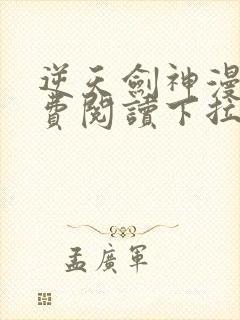 逆天劍神漫
費閱讀下拉
孟廣軍